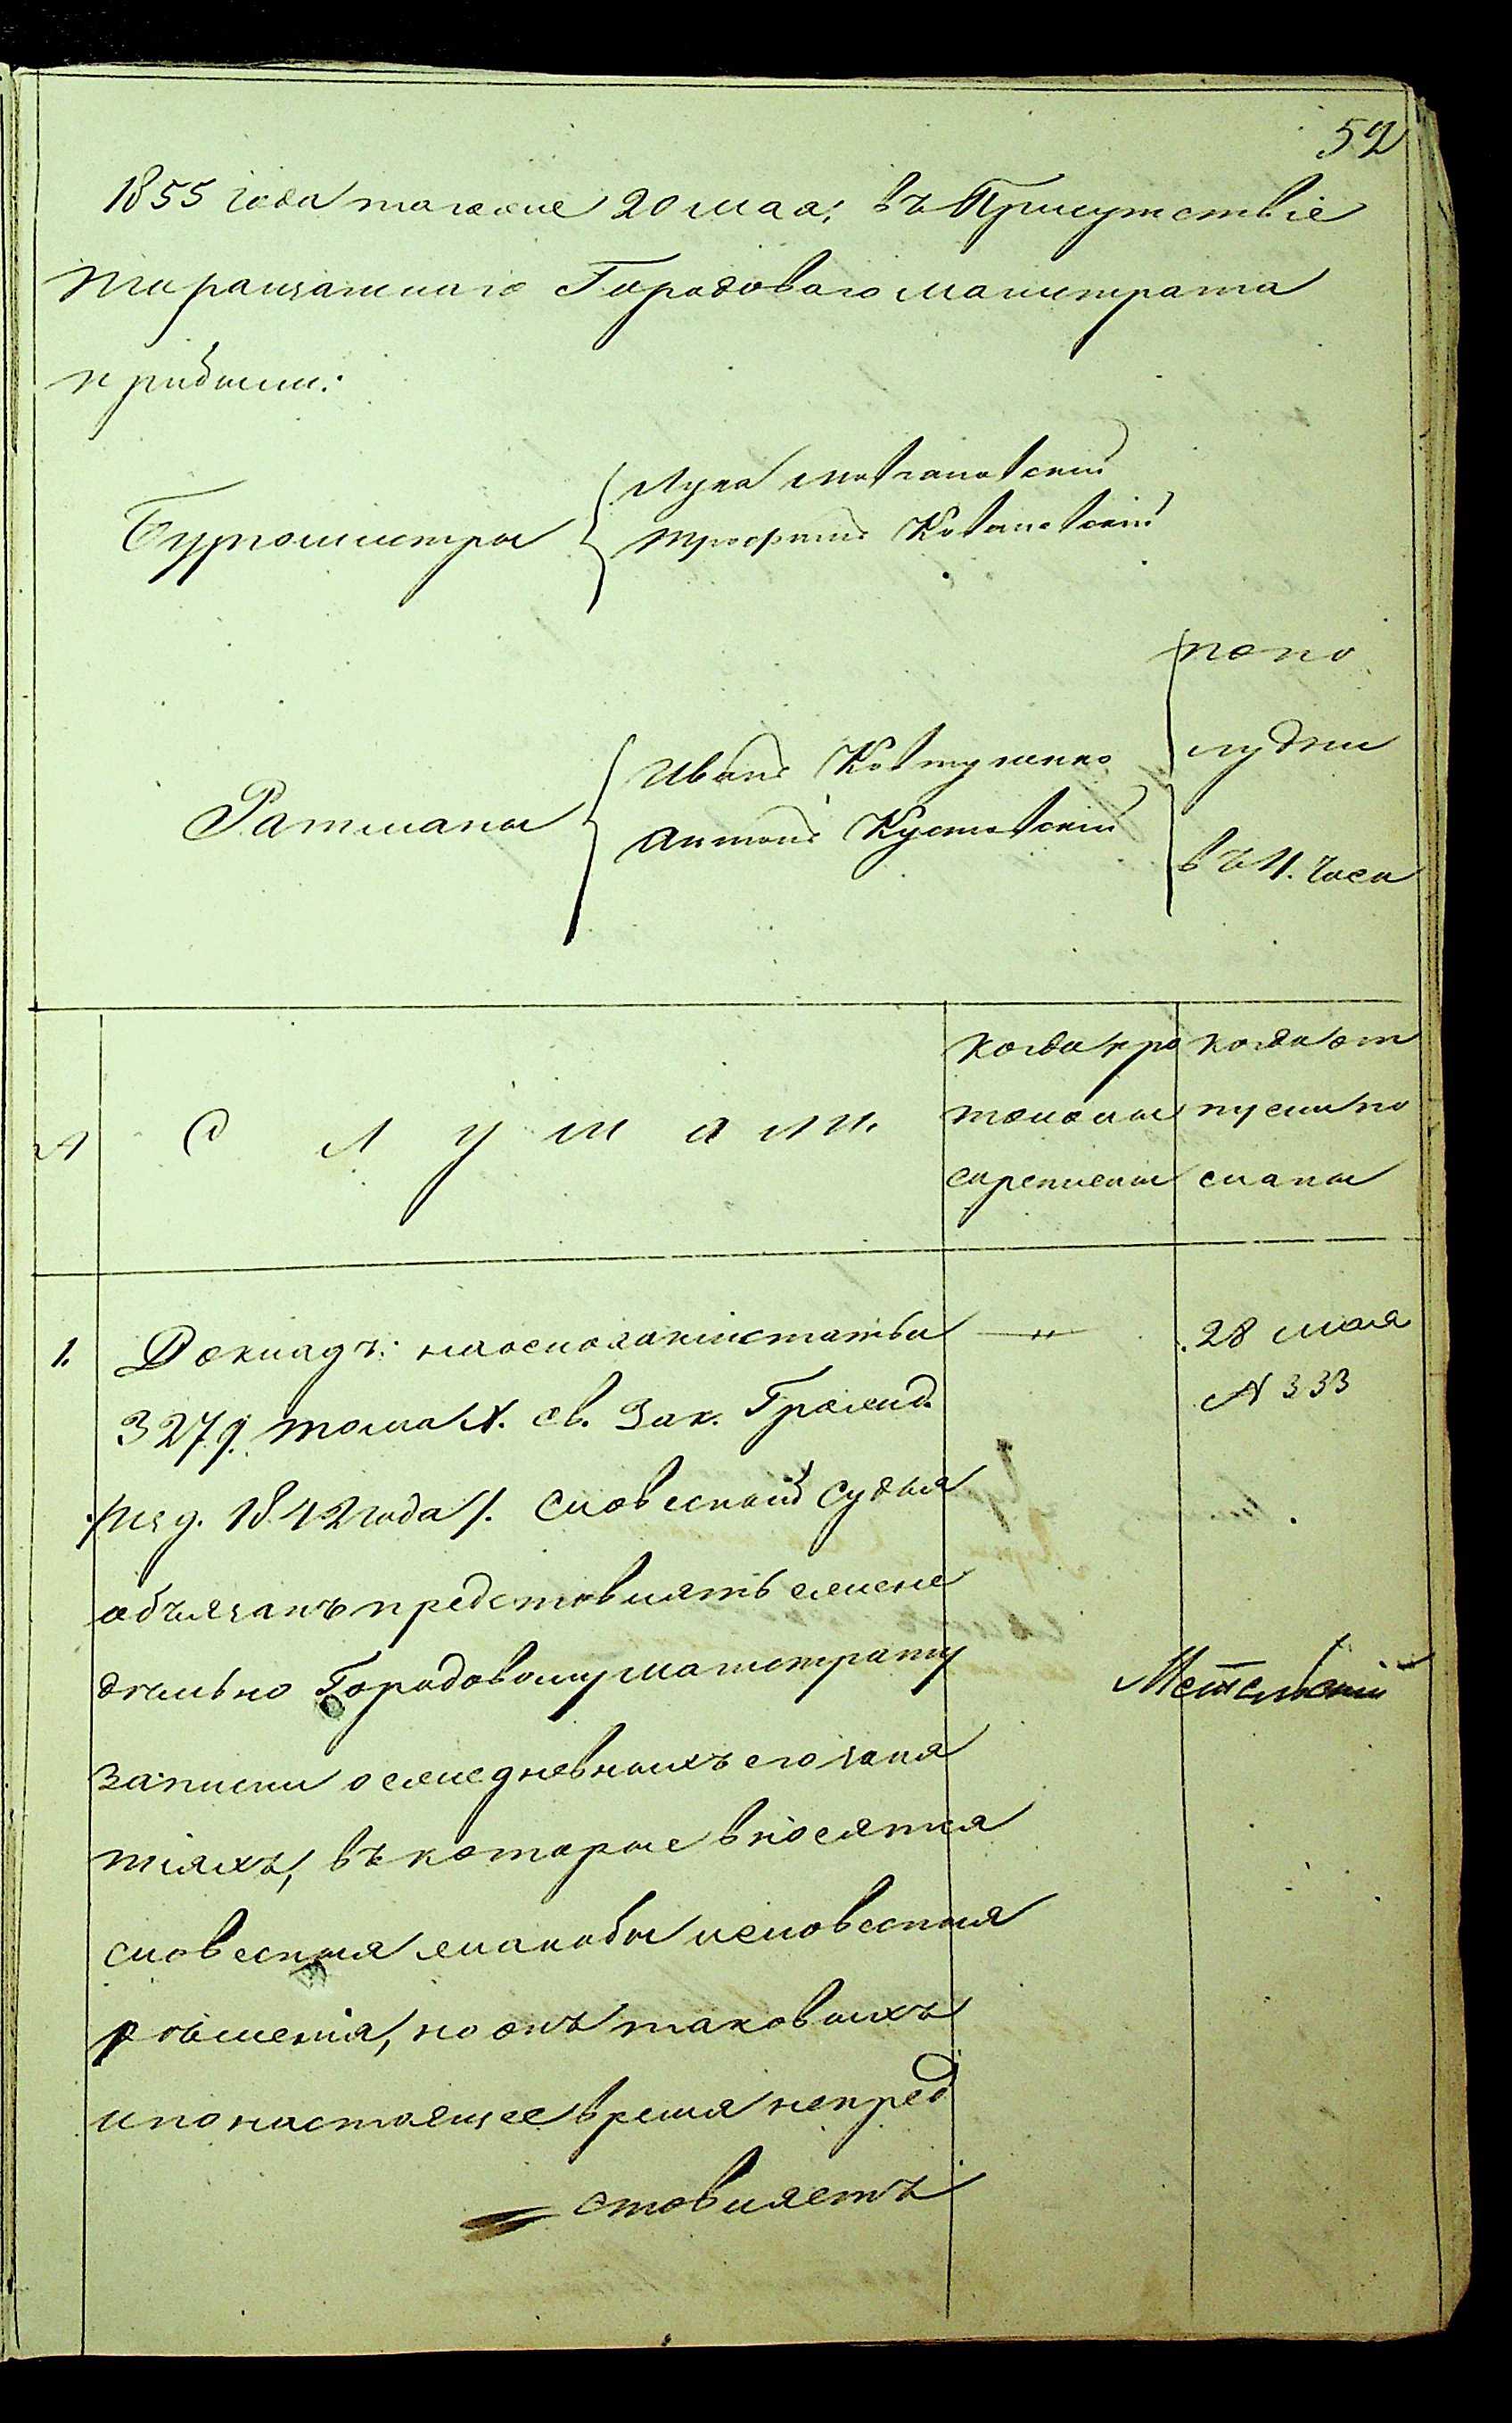 52
1855 года таковие 20 мая; въ Присутствіе
Таращанскаго Городоваго магистрата
прибыли:
Бургомистры
Лука
Трофимъ
Ратманы
Иванъ Ковтуненко
Антонъ Кустовскій
попо
лудни
въ 4. часа
№
С л у ш а л и.
когда про
токолы
скреплены
когда от
пуски по
сланы
1. Докладъ: на основаніи статьи
3279. тома X. Св. Зак. Гражд.
/: изд. 1842 года /. Словесный Судья
обязанъ представлять ежене
дѣльно Городовому магистрату
записки о ежедневныхъ его заня
тіяхъ, въ которые вносятся
словесныя жалобы и словесныя
рѣшенія, но онъ таковыхъ
и по настоящее время непред
ставляетъ
— „ —
28 мая
№ 333